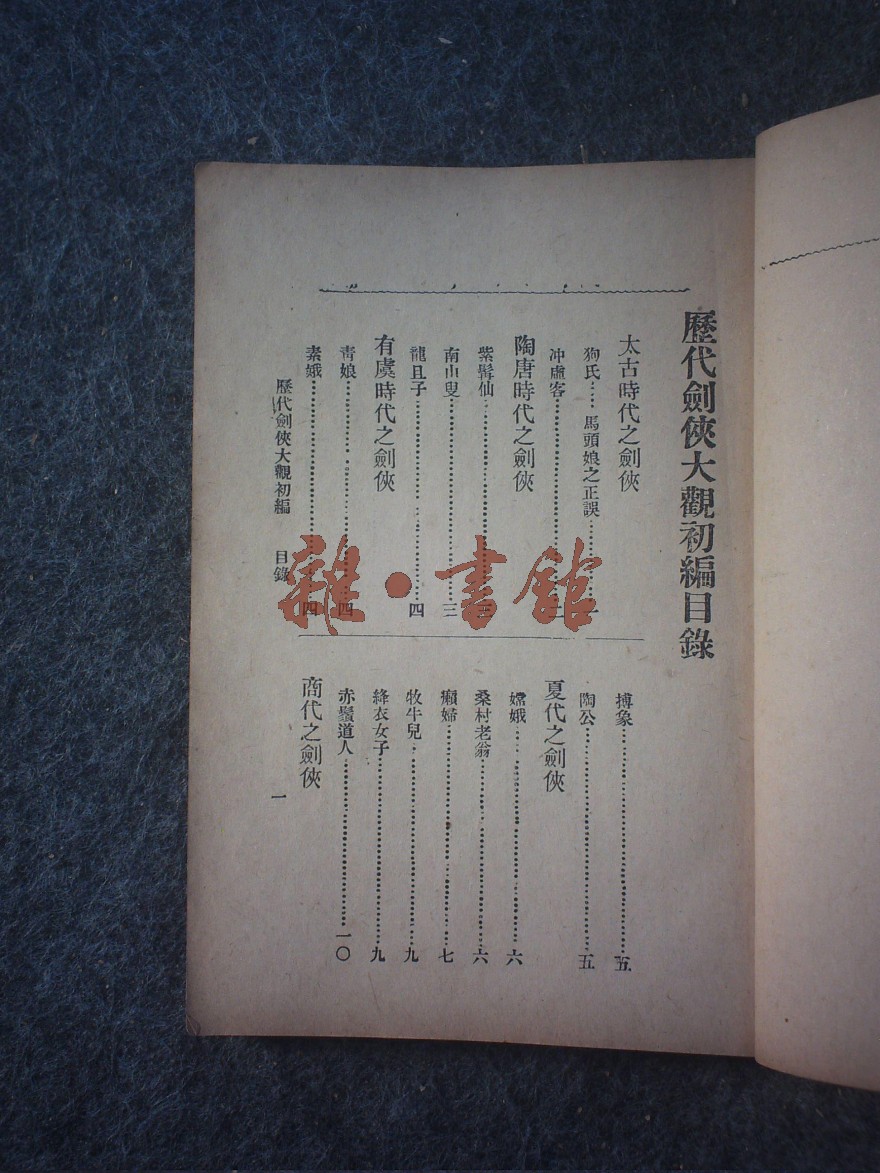 歷代劍俠大觀初編目錄
太古時代之劍俠
狗氏……馬頭娘之正誤……一
冲虛客……二
陶唐時代之劍俠
紫髯仙……
南山叟……三
龍且子……四
有虞時代之劍俠
靑娘……四
素娥……四
搏象……五
陶公……五
夏代之劍俠
嫦娥……六
桑村老翁……六
癩婦……七
牧牛兒……九
絳衣女子……九
赤鬚道人……一〇
商代之劍俠
歷代劍俠大觀初編 目錄
一
雜·書館